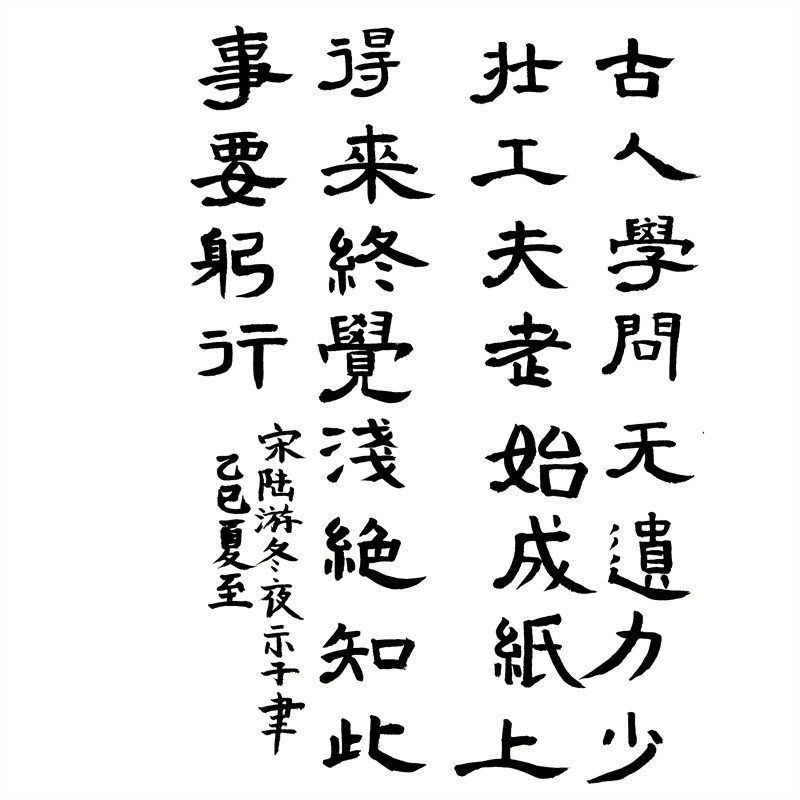 古人學問无遺力少
壮工夫老始成紙上
得來終覺淺絶知此
事要躬行
宋陆游冬夜示子聿
乙巳夏至